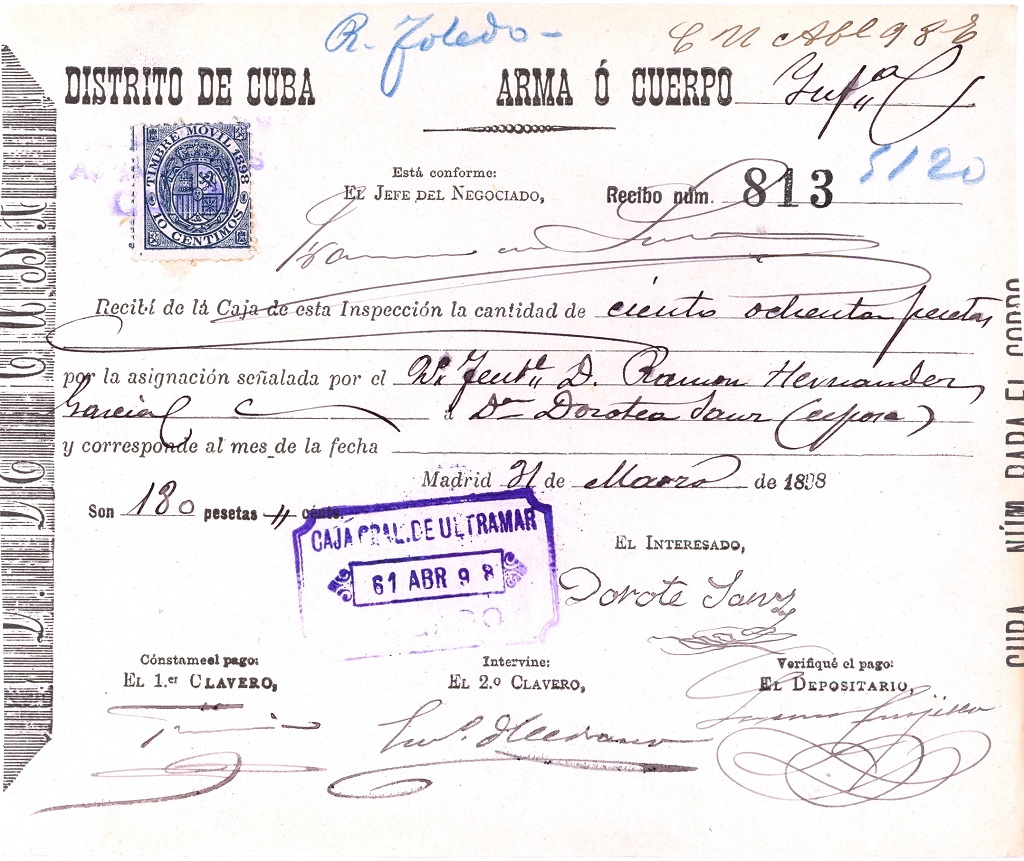 R. Toledo -
DISTRITO DE CUBA
ARMA Ó CUERPO Inf.ª
TIMBRE MÓVIL 1898
10 CENTIMOS
Está conforme:
EL JEFE DEL NEGOCIADO,
Recibo núm. 813
5120
Recibí de lá Caja de esta Inspección la cantidad de ciento ochenta pesetas
por la asignación señalada por el D. Ramon Hernandez
Garcia á Dª Dorotea Sanz (esposa)
y corresponde al mes de la fecha
Madrid 31 de Marzo de 1898
Son 180 pesetas 11 cénts.
CAJA GRAL. DE ULTRAMAR
61 ABR 98
EL INTERESADO,
Dorote Sanz
Cónstame el pago:
EL 1.er CLAVERO,
Intervine:
EL 2.º CLAVERO,
Verifiqué el pago:
EL DEPOSITARIO,
CUBA NÚM PARA EL COBRO